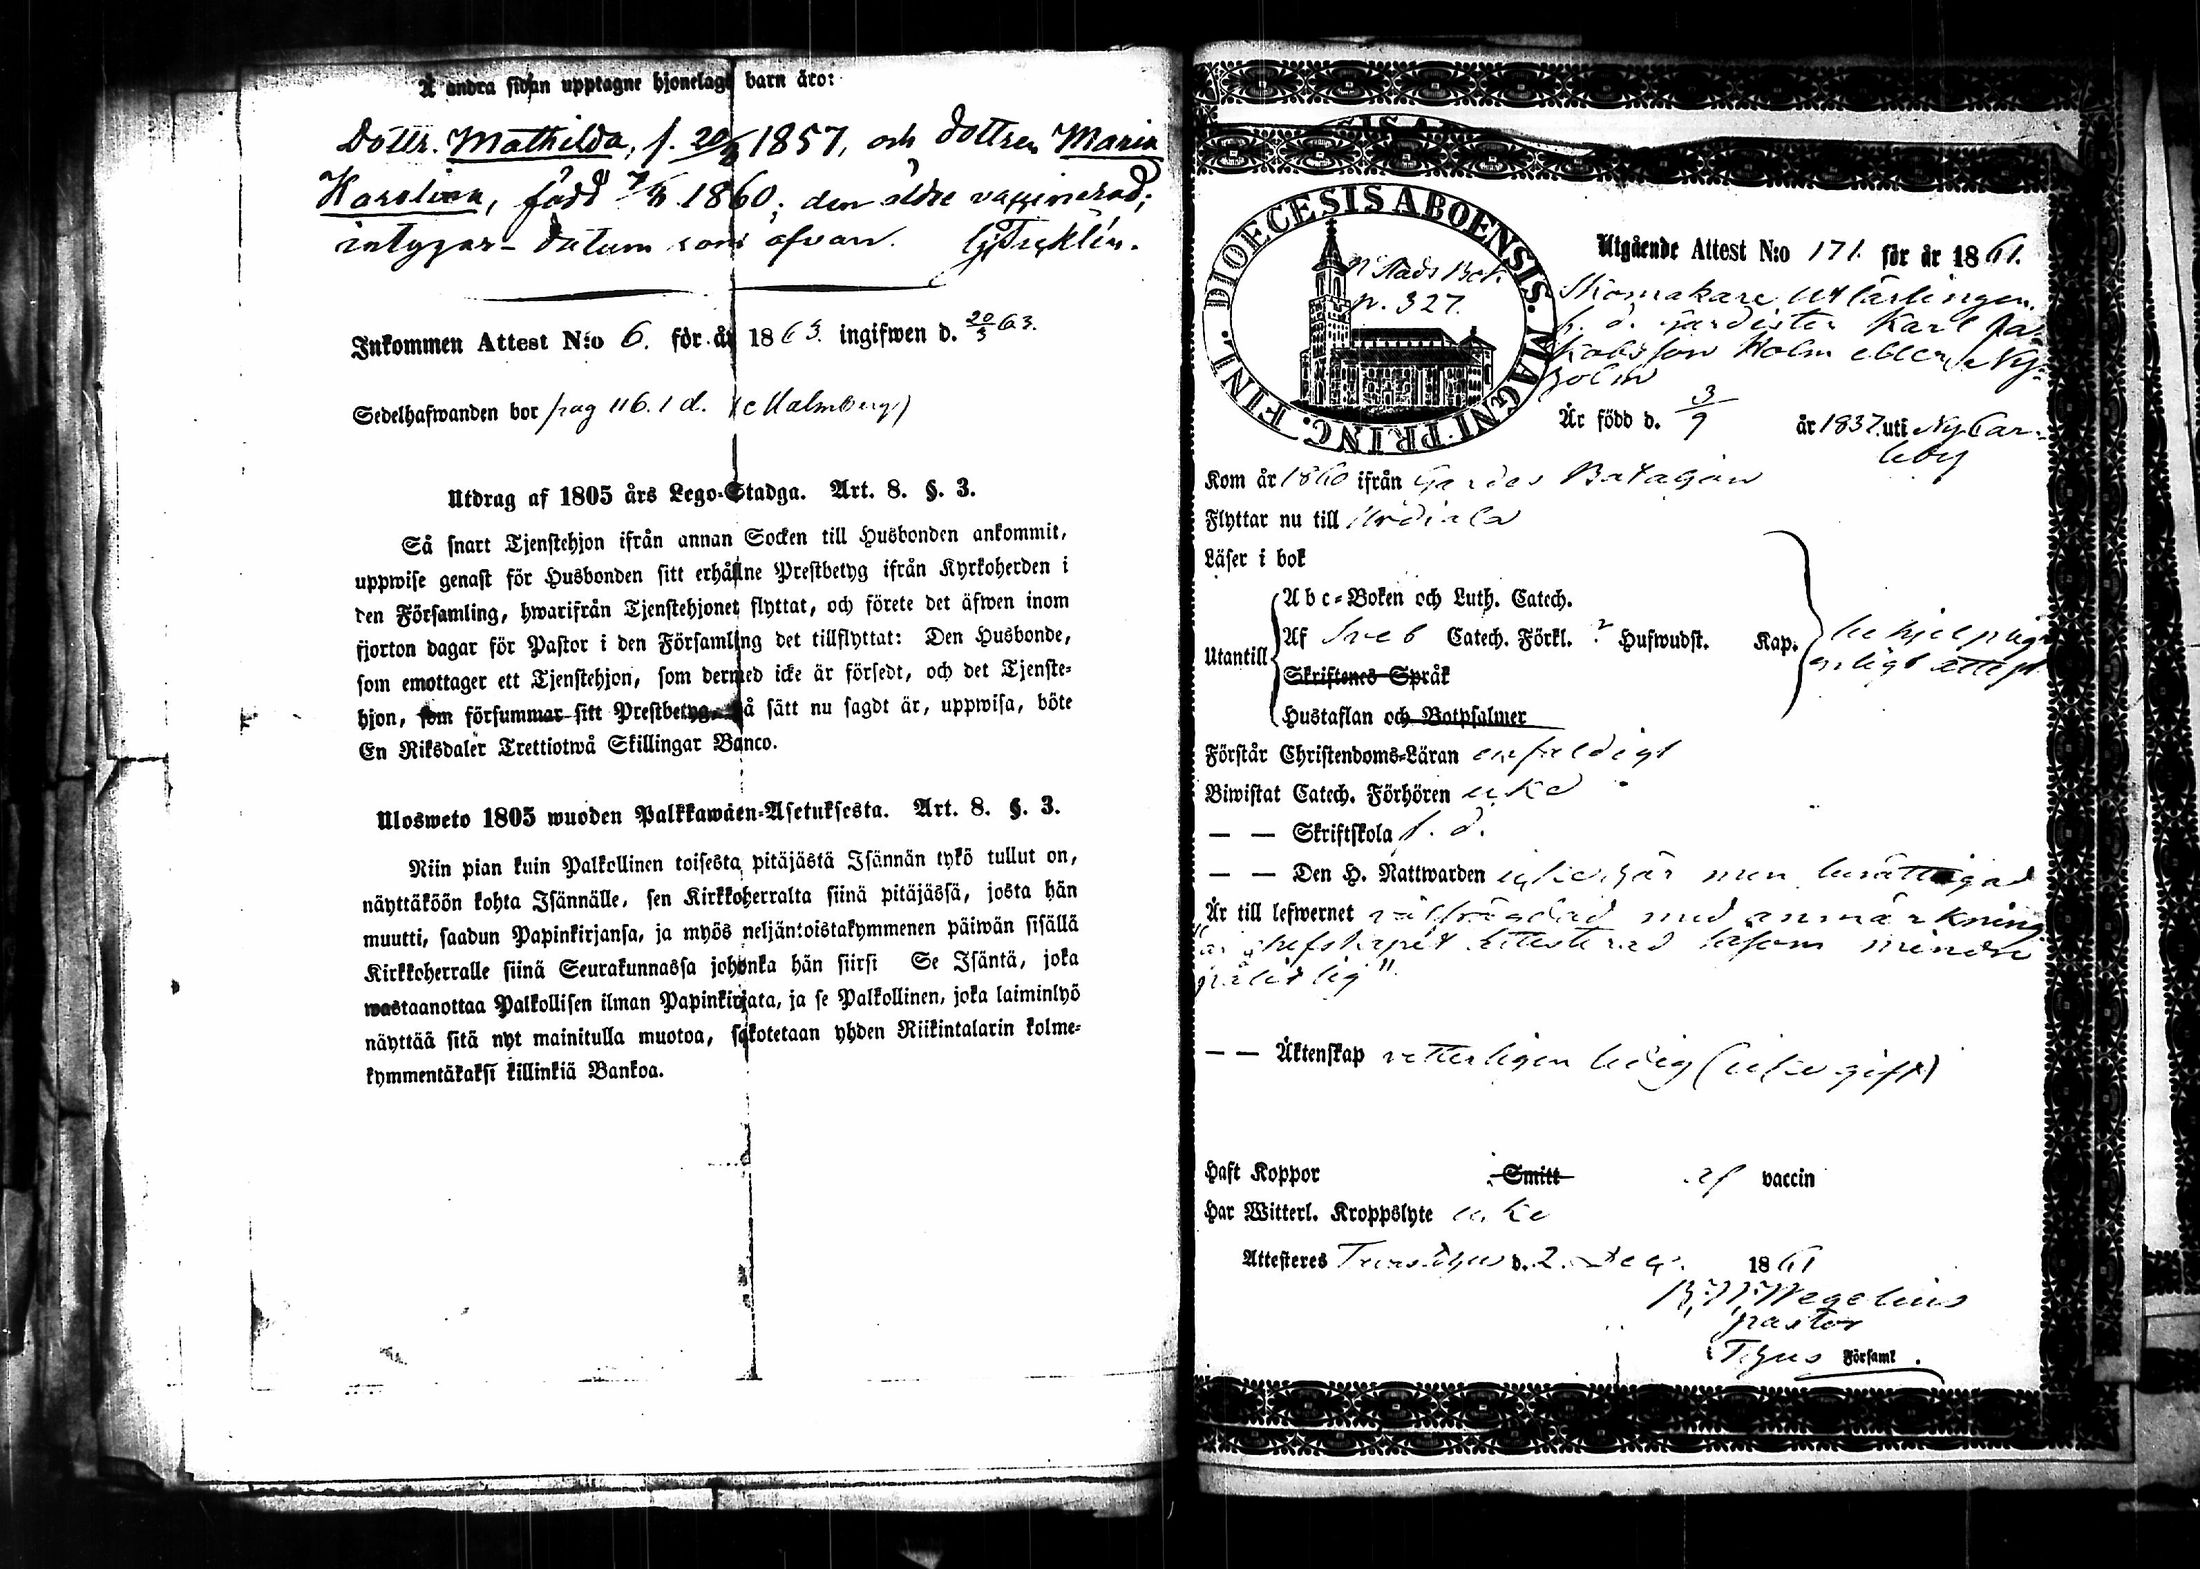 Å andra sidan upptagne hjonelags barn äro:
Dottr. Mathilda, f. 20/8 1857, och dottren Maria
Karolina, född 1860; den äldre vaccinerad;
intygar datum som ofvan.
Inkommen Attest N:o 6. för år 1863. ingifwen d. 20/3 63.
Sedelhafwanden bor pag 116. 1 d. (Malmberg)
Utdrag af 1805 års Lego-Stadga. Art. 8. §. 3.
Så snart Tjenstehjon ifrån annan Socken till Husbonden ankommit,
uppwise genast för Husbonden sitt erhållne Prestbetyg ifrån Kyrkoherden i
den Församling, hwarifrån Tjenstehjonet flyttat, och förete det äfwen inom
fjorton dagar för Pastor i den Församling det tillflyttat: Den Husbonde,
som emottager ett Tjenstehjon, som dermed icke är försedt, och det Tjenste-
hjon, som försummar sitt Prestbetyg, på sätt nu sagdt är, uppwisa, böte
En Riksdaler Trettiotwå Skillingar Banco.
Ulosweto 1805 wuoden Palkkawäen-Asetuksesta. Art. 8. §. 3.
Niin pian kuin Palkollinen toisesta pitäjästä Isännän tykö tullut on,
näyttäköön kohta Isännälle, sen Kirkkoherralta siinä pitäjässä, josta hän
muutti, saadun Papinkirjansa, ja myös neljäntoistakymmenen päiwän sisällä
Kirkkoherralle siinä Seurakunnassa johonka hän siirsi Se Isäntä, joka
wastaanottaa Palkollisen ilman Papinkirjata, ja se Palkollinen, joka laiminlyö
näyttää sitä nyt mainitulla muotoa, sakotetaan yhden Riikintalarin kolme-
kymmentäkaksi killinkiä Bankoa.
DIOECESIS ABOENSIS. MAGNI PRINC. FINL.
Stads Bok
p. 327.
Utgående Attest N:o 171. för år 1861.
Skomakare lärlingen
f. d. gardisten Karl Ja-
kobsson Holm eller Ny-
holm
Är född d. 3/9 år 1837. uti Nycar-
leby
Kom år 1860 ifrån Gardes Bataljon
Flyttar nu till Urdiala
Läser i bok
Utantill
Abc-Boken och Luth. Catech.
Af Sveb Catech. Förkl. Hufwudst. Kap.
Skriftenes Språk
Hustaflan och Botpsalmer
behjelpligt
enligt attest
Förstår Christendoms-Läran enfaldigt
Biwistat Catech. Förhören icke
— — Skriftskola f. d.
— — Den H. Nattwarden icke här men berättigad
Är till lefwernet välfrägdad med anmärkning
"af chefskapet attesterad såsom mindre
pålitlig".
— — Äktenskap vetterligen ledig (icke gift)
Haft Koppor Smitt af vaccin
Har Witterl. Kroppslyte icke
Attesteres Tusby d. 2. Dec. 1861
Wegelius
pastor
Församl.